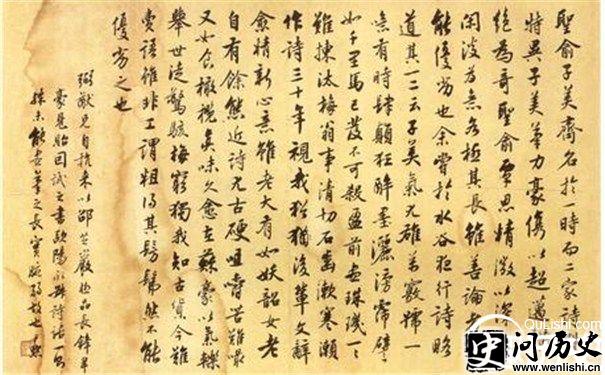 聖俞子美齋名於一時而二家詩
特異子美筆力豪儁以超邁
絕為奇聖俞覃思精微以深
閑淡為意各極其長雖善論者
能優劣也余嘗於水谷夜行詩略
道其一二云子美氣尤雄萬竅號一
噫有時肆顛狂醉墨灑滂霈譬
如千里馬已發不可殺盈前盡珠璣一一
難揀汰梅翁事清切石齒漱寒瀨
作詩三十年視我猶後輩文辭
愈精新心意雖老大有如妖韶女老
自有餘態近詩尤古硬咀嚼苦難嘬
又如食橄欖真味久愈在蘇豪以氣轢
舉世徒驚駭梅窮獨我知古貨今難
賣語雖非工謂粗得其髣髴然不能
優劣之也
弼猷兄自揚來以邵芝巖極品長鋒羊
毫見貽因試之書歐陽永叔詩話一首
殊未能盡筆之長實腕弱故也
QuLishi.com
问历史
www.wenlishi.cn